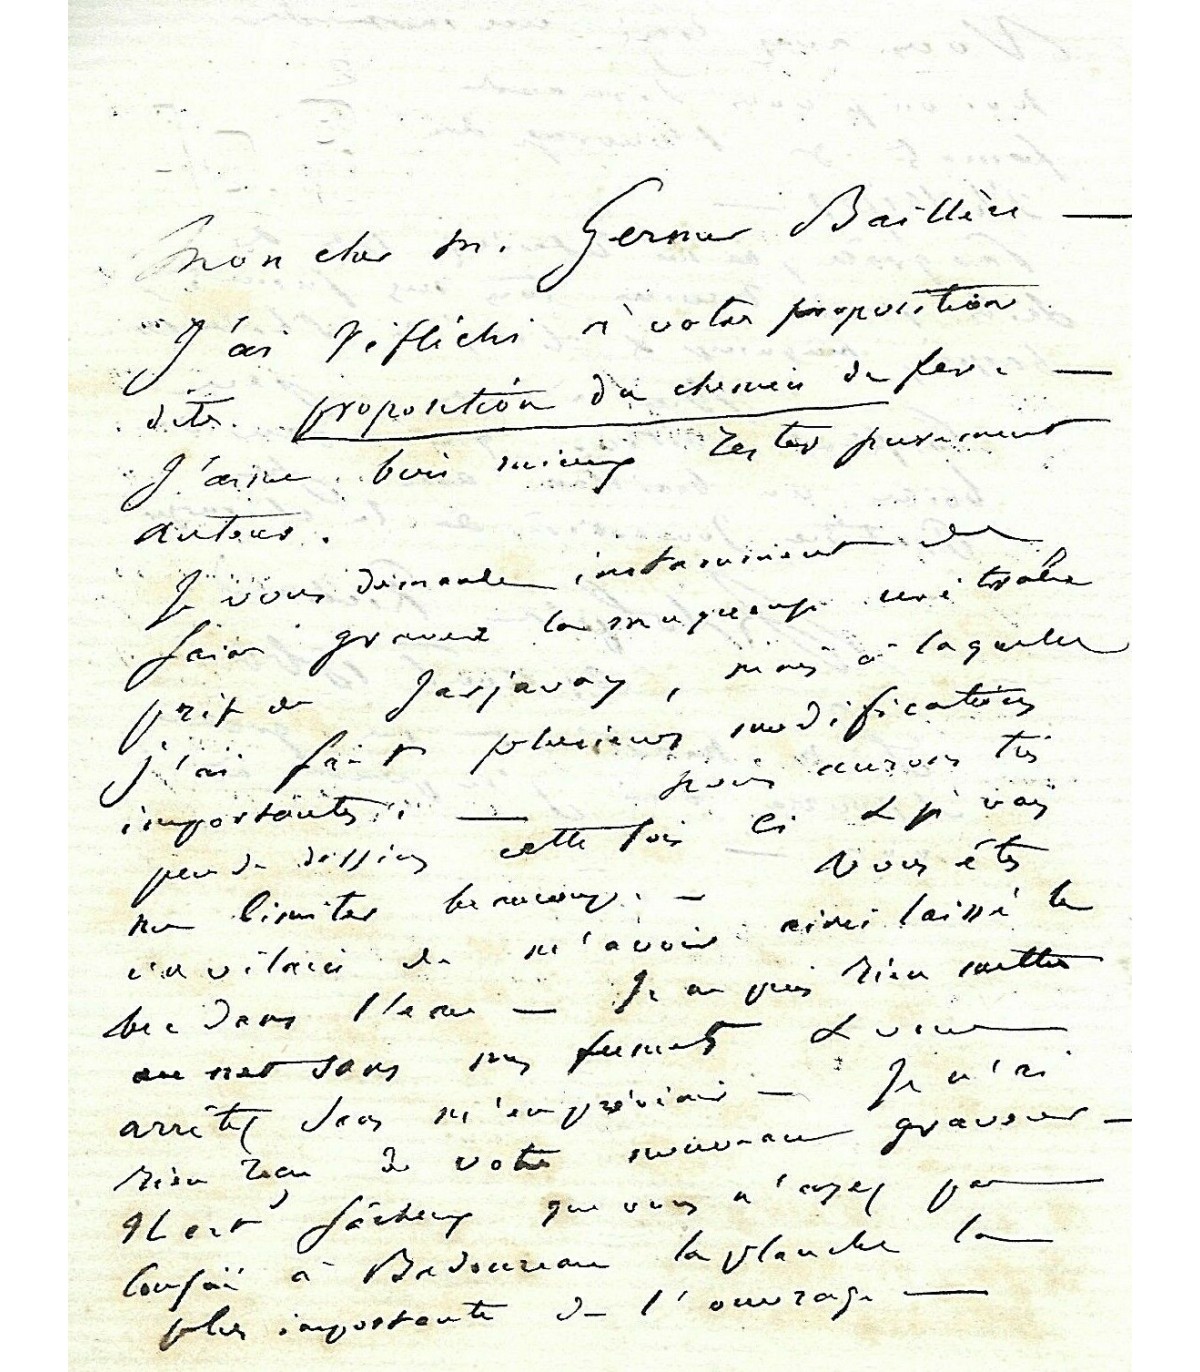 Mon cher M. Germer Baillère —
J'ai réfléchi à votre proposition
dite proposition du chemin de fer. —
J'aime bien mieux rester purement
auteur.
Je vous demande instamment de
faire graver la muqueuse urétrale
prix de Jarjavay, mais à laquelle
j'ai fait plusieurs modifications
importantes : — nous aurons très
peu de dessins cette fois ci & je vais
me limiter beaucoup. — Vous êtes
un vilain de m'avoir ainsi laissé le
bec dans l'eau — Je ne puis rien mettre
au net sans mes & vous
arrêtez sans m'en prévenir — Je n'ai
rien reçu de votre nouveau graveur —
Il est fâcheux que vous n'ayez pas
confié à Badoureau la planche la
plus importante de l'ouvrage —